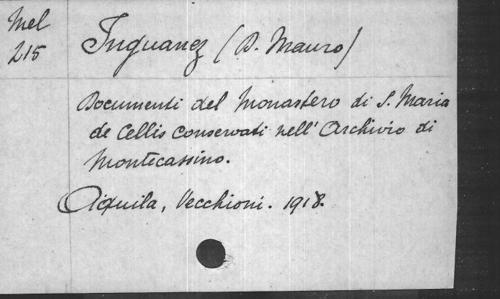 Mel
215
Inguanez (D. Mauro)
Documenti del Monastero di S. Maria
de Cellis conservati nell' Archivio di
Montecassino.
Aquila, Vecchioni. 1918.